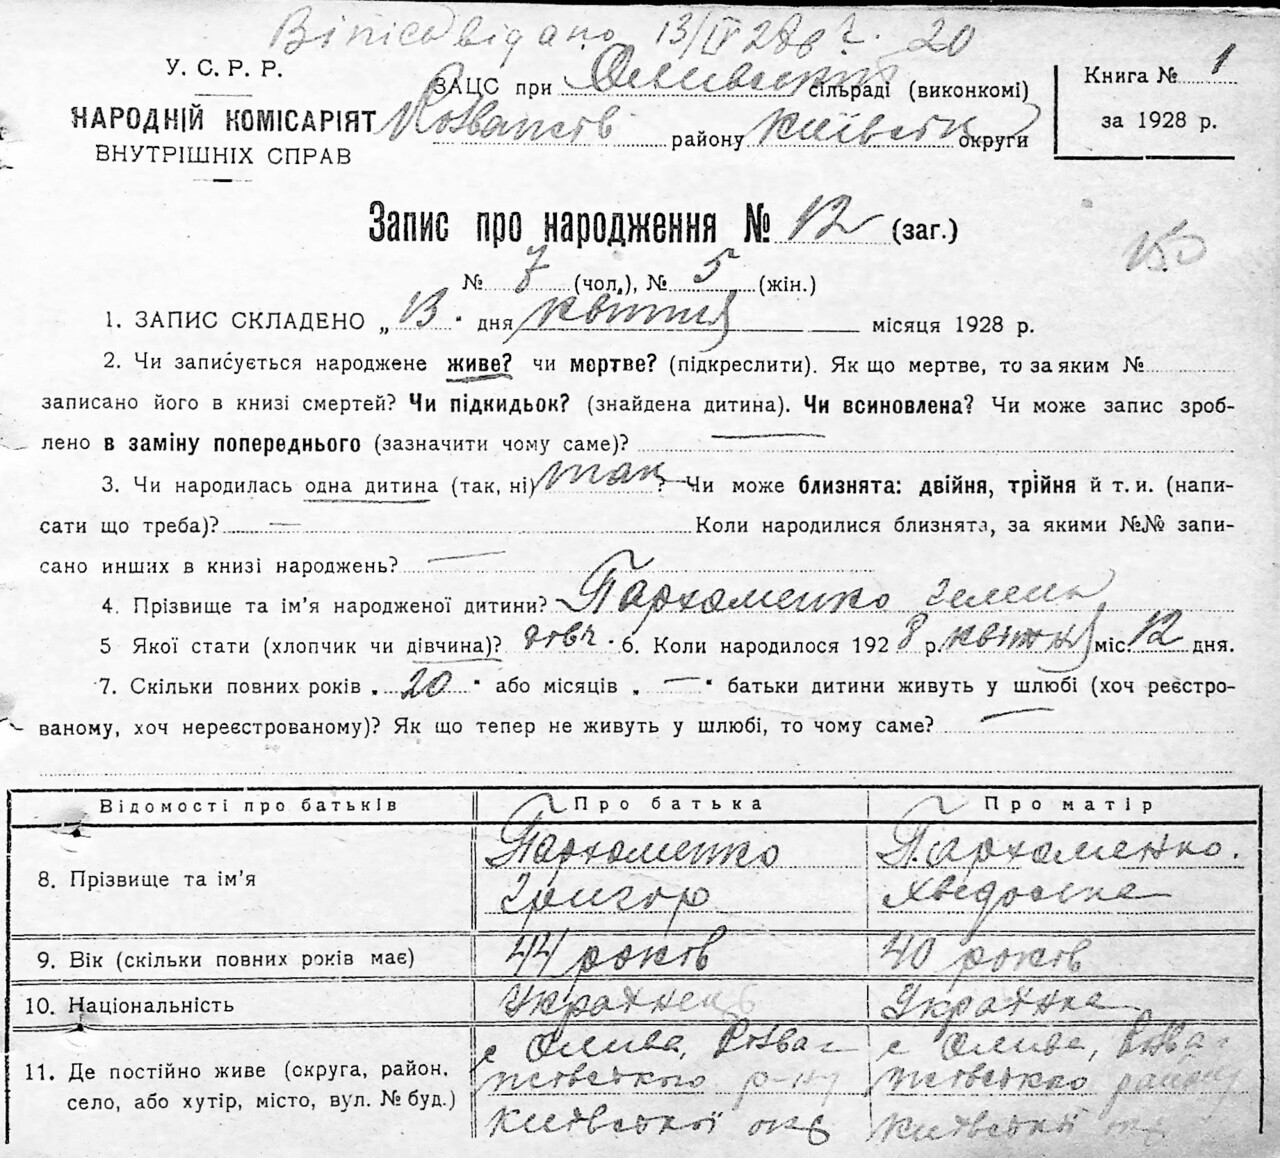 Віпіс видано 13/IV 28 р. 20
У. С. Р. Р.
НАРОДНІЙ КОМІСАРІЯТ
ВНУТРІШНІХ СПРАВ
ЗАЦС при Оливській сільраді (виконкомі)
району Київськ округи
Книга № 1
за 1928 р.
Запис про народження № 12 (заг.)
150
№ 7 (чол.), № 5 (жін.)
1. ЗАПИС СКЛАДЕНО „13" дня квітня місяця 1928 р.
2. Чи записується народжене живе? чи мертве? (підкреслити). Як що мертве, то за яким №
записано його в книзі смертей? Чи підкидьок? (знайдена дитина). Чи всиновлена? Чи може запис зроб-
лено в заміну попереднього (зазначити чому саме)? —
3. Чи народилась одна дитина (так, ні) так ? Чи може близнята: двійня, трійня й т. и. (напи-
сати що треба)? — Коли народилися близнята, за якими №№ запи-
сано инших в книзі народжень? —
4. Прізвище та ім'я народженої дитини? Пархоменко
5 Якої стати (хлопчик чи дівчина)? дівч. 6. Коли народилося 1928 р. квітня міс. 12 дня.
7. Скільки повних років „20" або місяців „—" батьки дитини живуть у шлюбі (хоч реєстро-
ваному, хоч нереєстрованому)? Як що тепер не живуть у шлюбі, то чому саме? —
Відомості про батьків Про батька Про матір
8. Прізвище та ім'я Пархоменко Григор Пархоменко. Хведоська
9. Вік (скільки повних років має) 44 років 40 років
10. Національність Українець Українка
11. Де постійно живе (округа, район, село, або хутір, місто, вул. № буд.) с Олива, Розва- жівського р-ну Київської окр с Олива, Розва- жівського району Київської окр